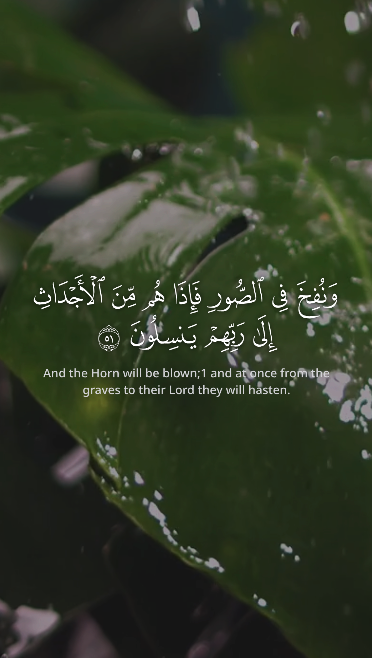 وَنُفِخَ فِى ٱلصُّورِ فَإِذَا هُم مِّنَ ٱلْأَجْدَاثِ
إِلَىٰ رَبِّهِمْ يَنسِلُونَ ٥١
And the Horn will be blown;1 and at once from the
graves to their Lord they will hasten.